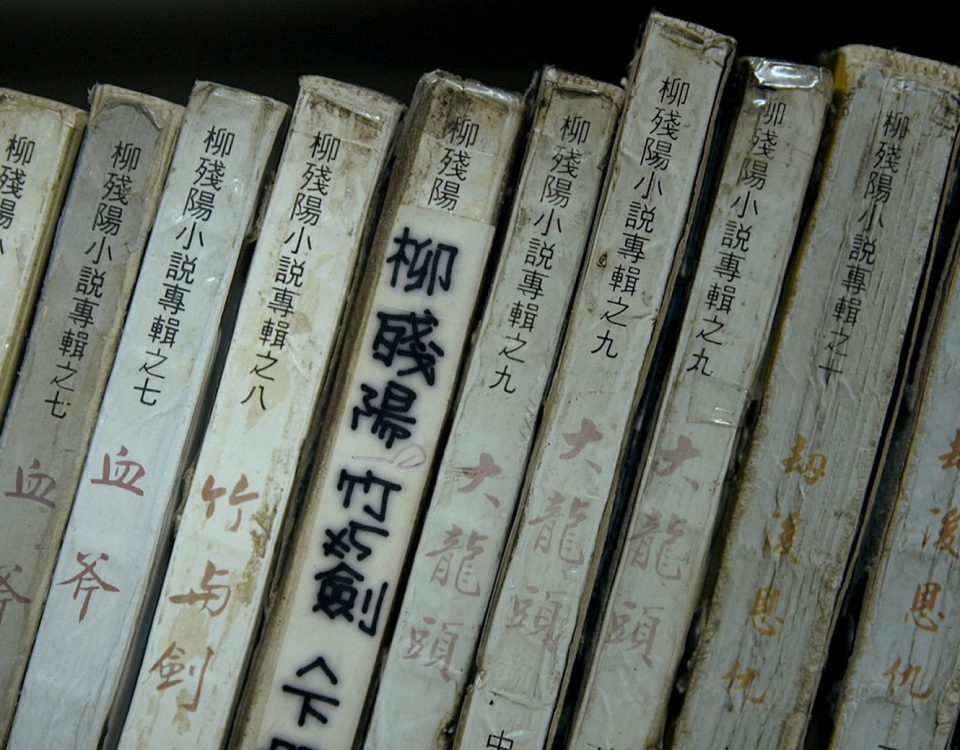 柳殘陽小
柳殘陽小說專輯之七
血斧
柳殘陽小說專輯之七
血斧
柳殘陽小說專輯之八
竹与劍
柳殘陽
柳殘陽
竹
劍
下
柳殘陽小說專輯之九
大龍頭
柳殘陽小說專輯之九
大龍頭
中
柳殘陽小說專輯之九
大龍頭
柳殘陽小說專輯之十
劫後恩仇
劫後恩仇